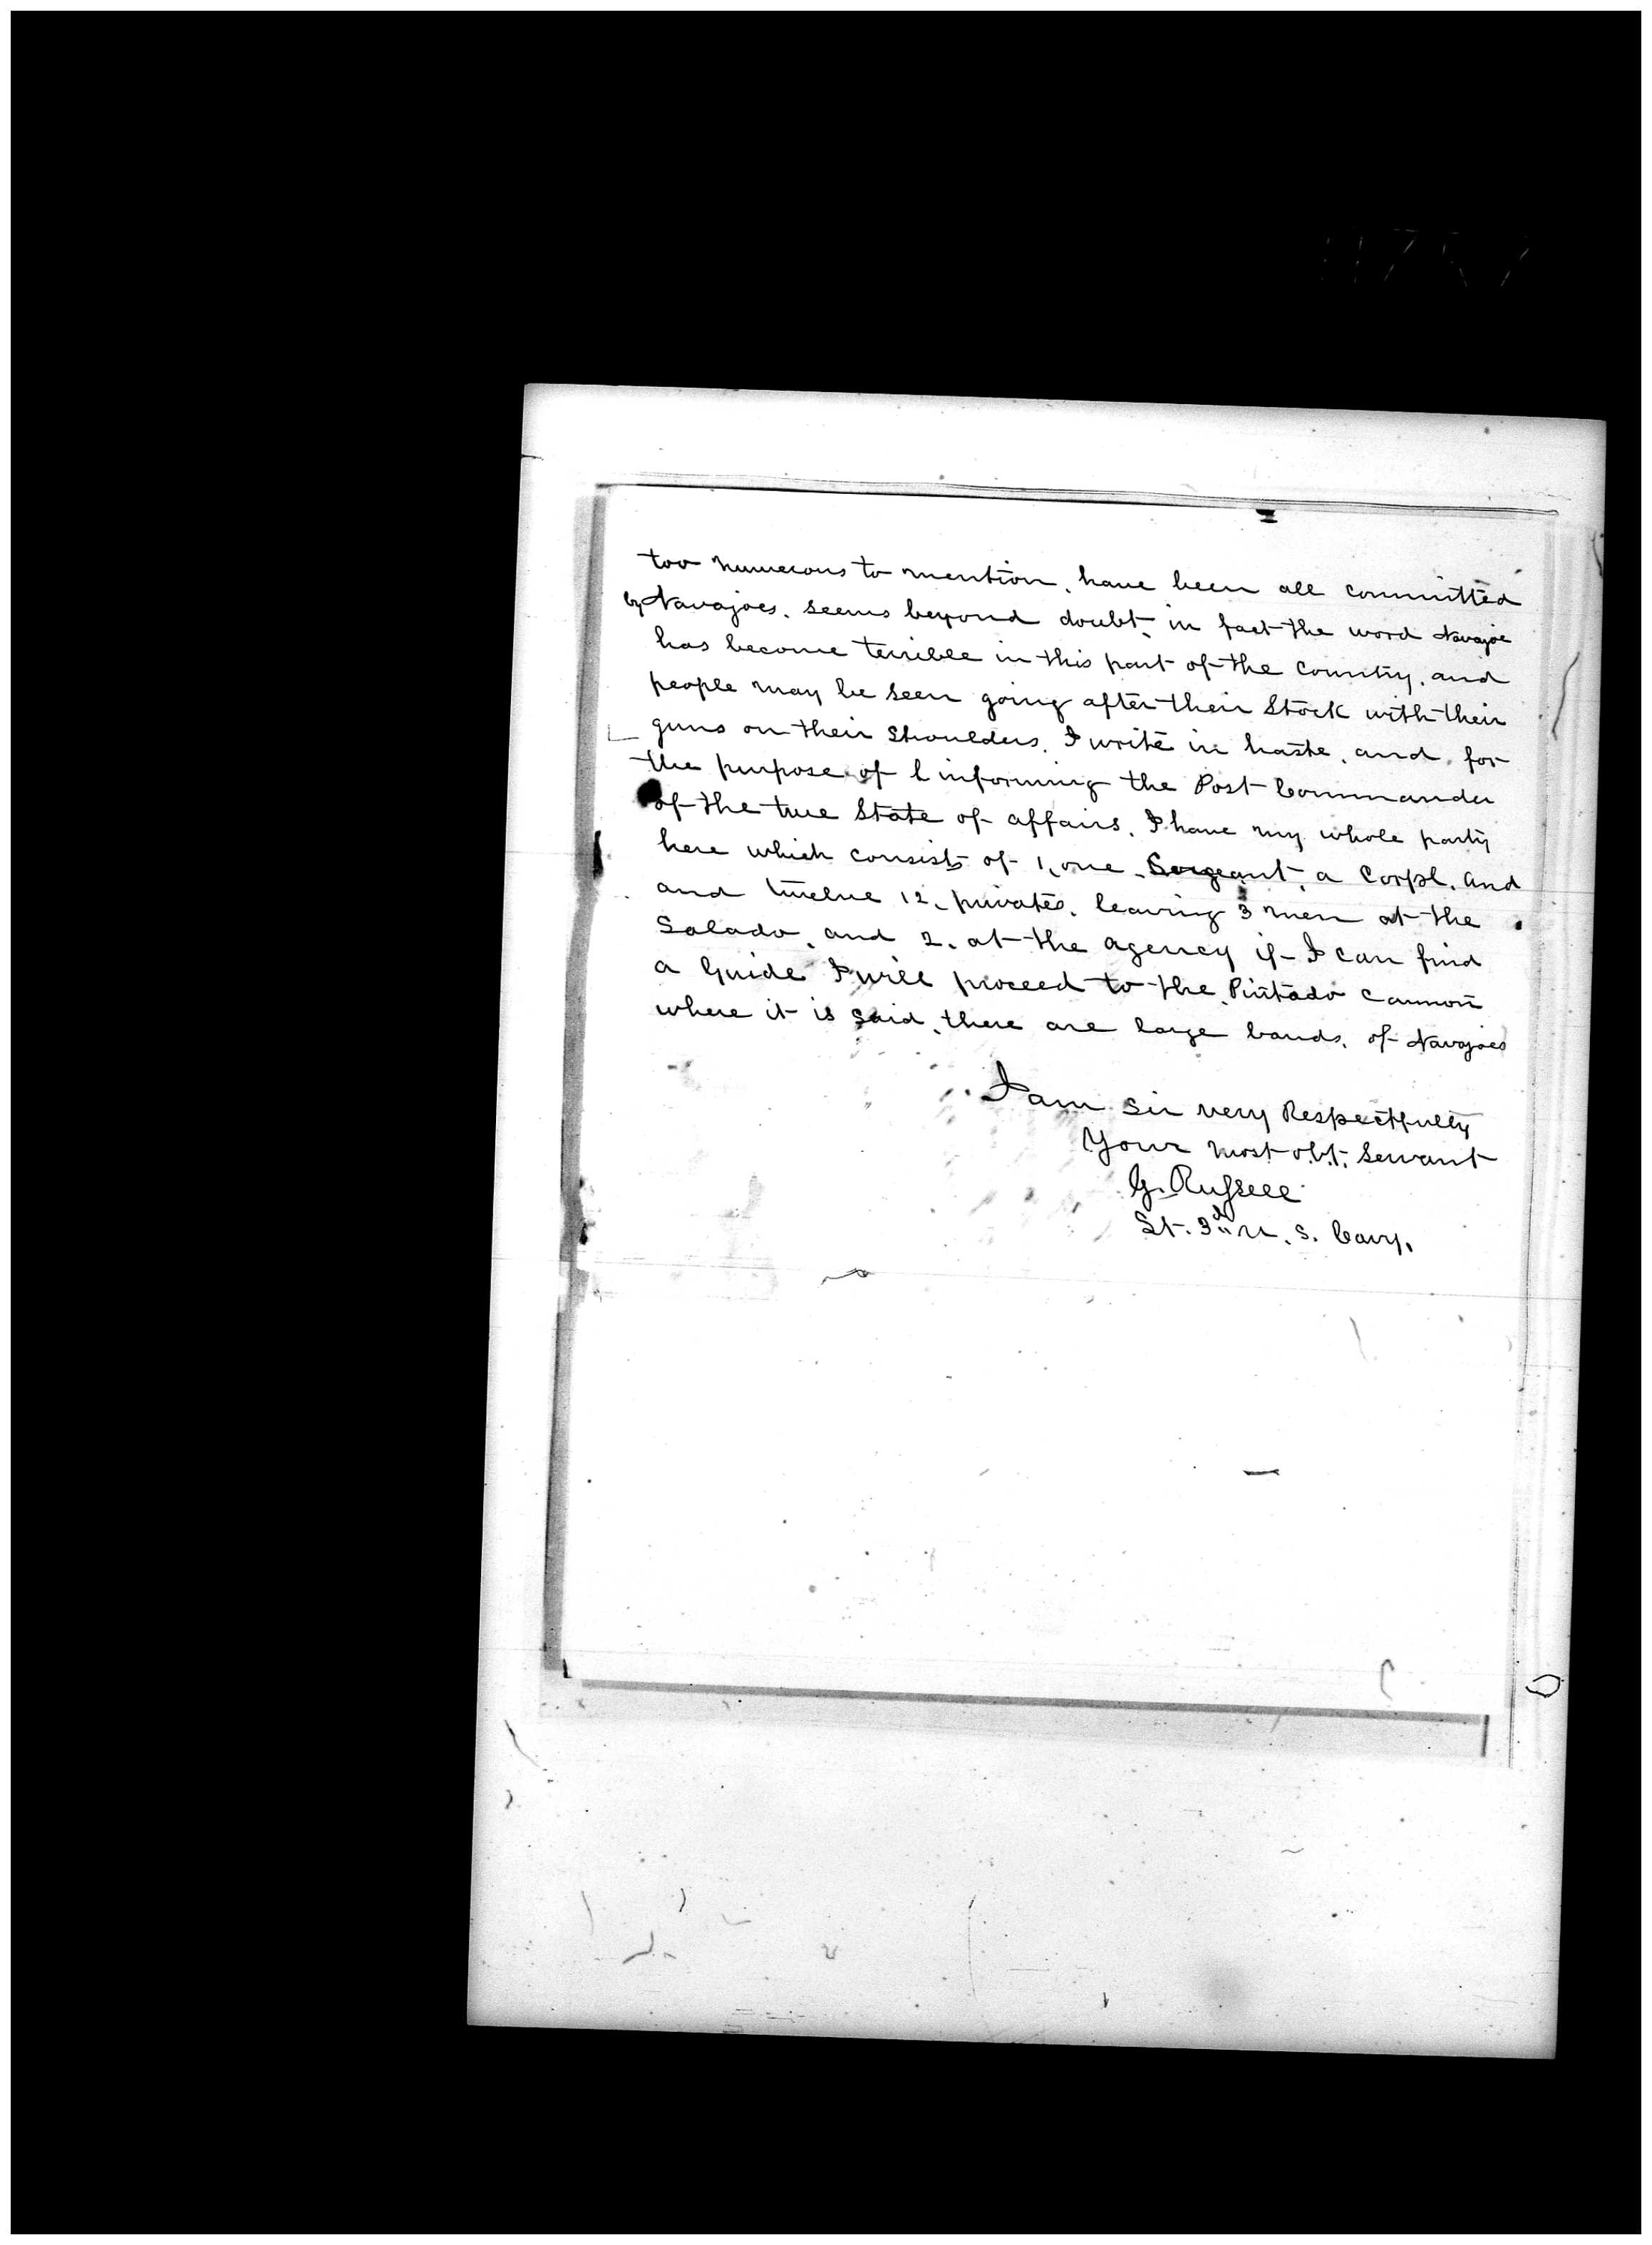 too numerous to mention, have been all committed
by Navajoes. seems beyond doubt, in fact the word Navajoe
has become terrible in this part of the country, and
people may be seen going after their Stock with their
guns on their Shoulders. I write in haste, and, for
the purpose of informing the Post Commander
of the true State of affairs. I have my whole party
here which consists of 1, one Sergeant, a Corpl. and
and twelve 12, privates, leaving 3 men at the
Salado, and 2, at the agency if I can find
a Guide I will proceed to the Pintado Cannon
where it is said, there are large bands, of Navajoes
I am Sir very Respectfully
Your most obt. Servant
G. Russell
Lt. 3rd U. S. Cavy.